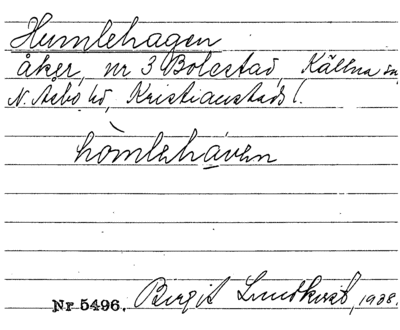 Humlehagen
åker, nr 3 Bolestad, Källna sn,
N. Åsbo hd, Kristianstads l.
hòmlehàven
Nr 5496. Birgit Lundkvist, 1938.